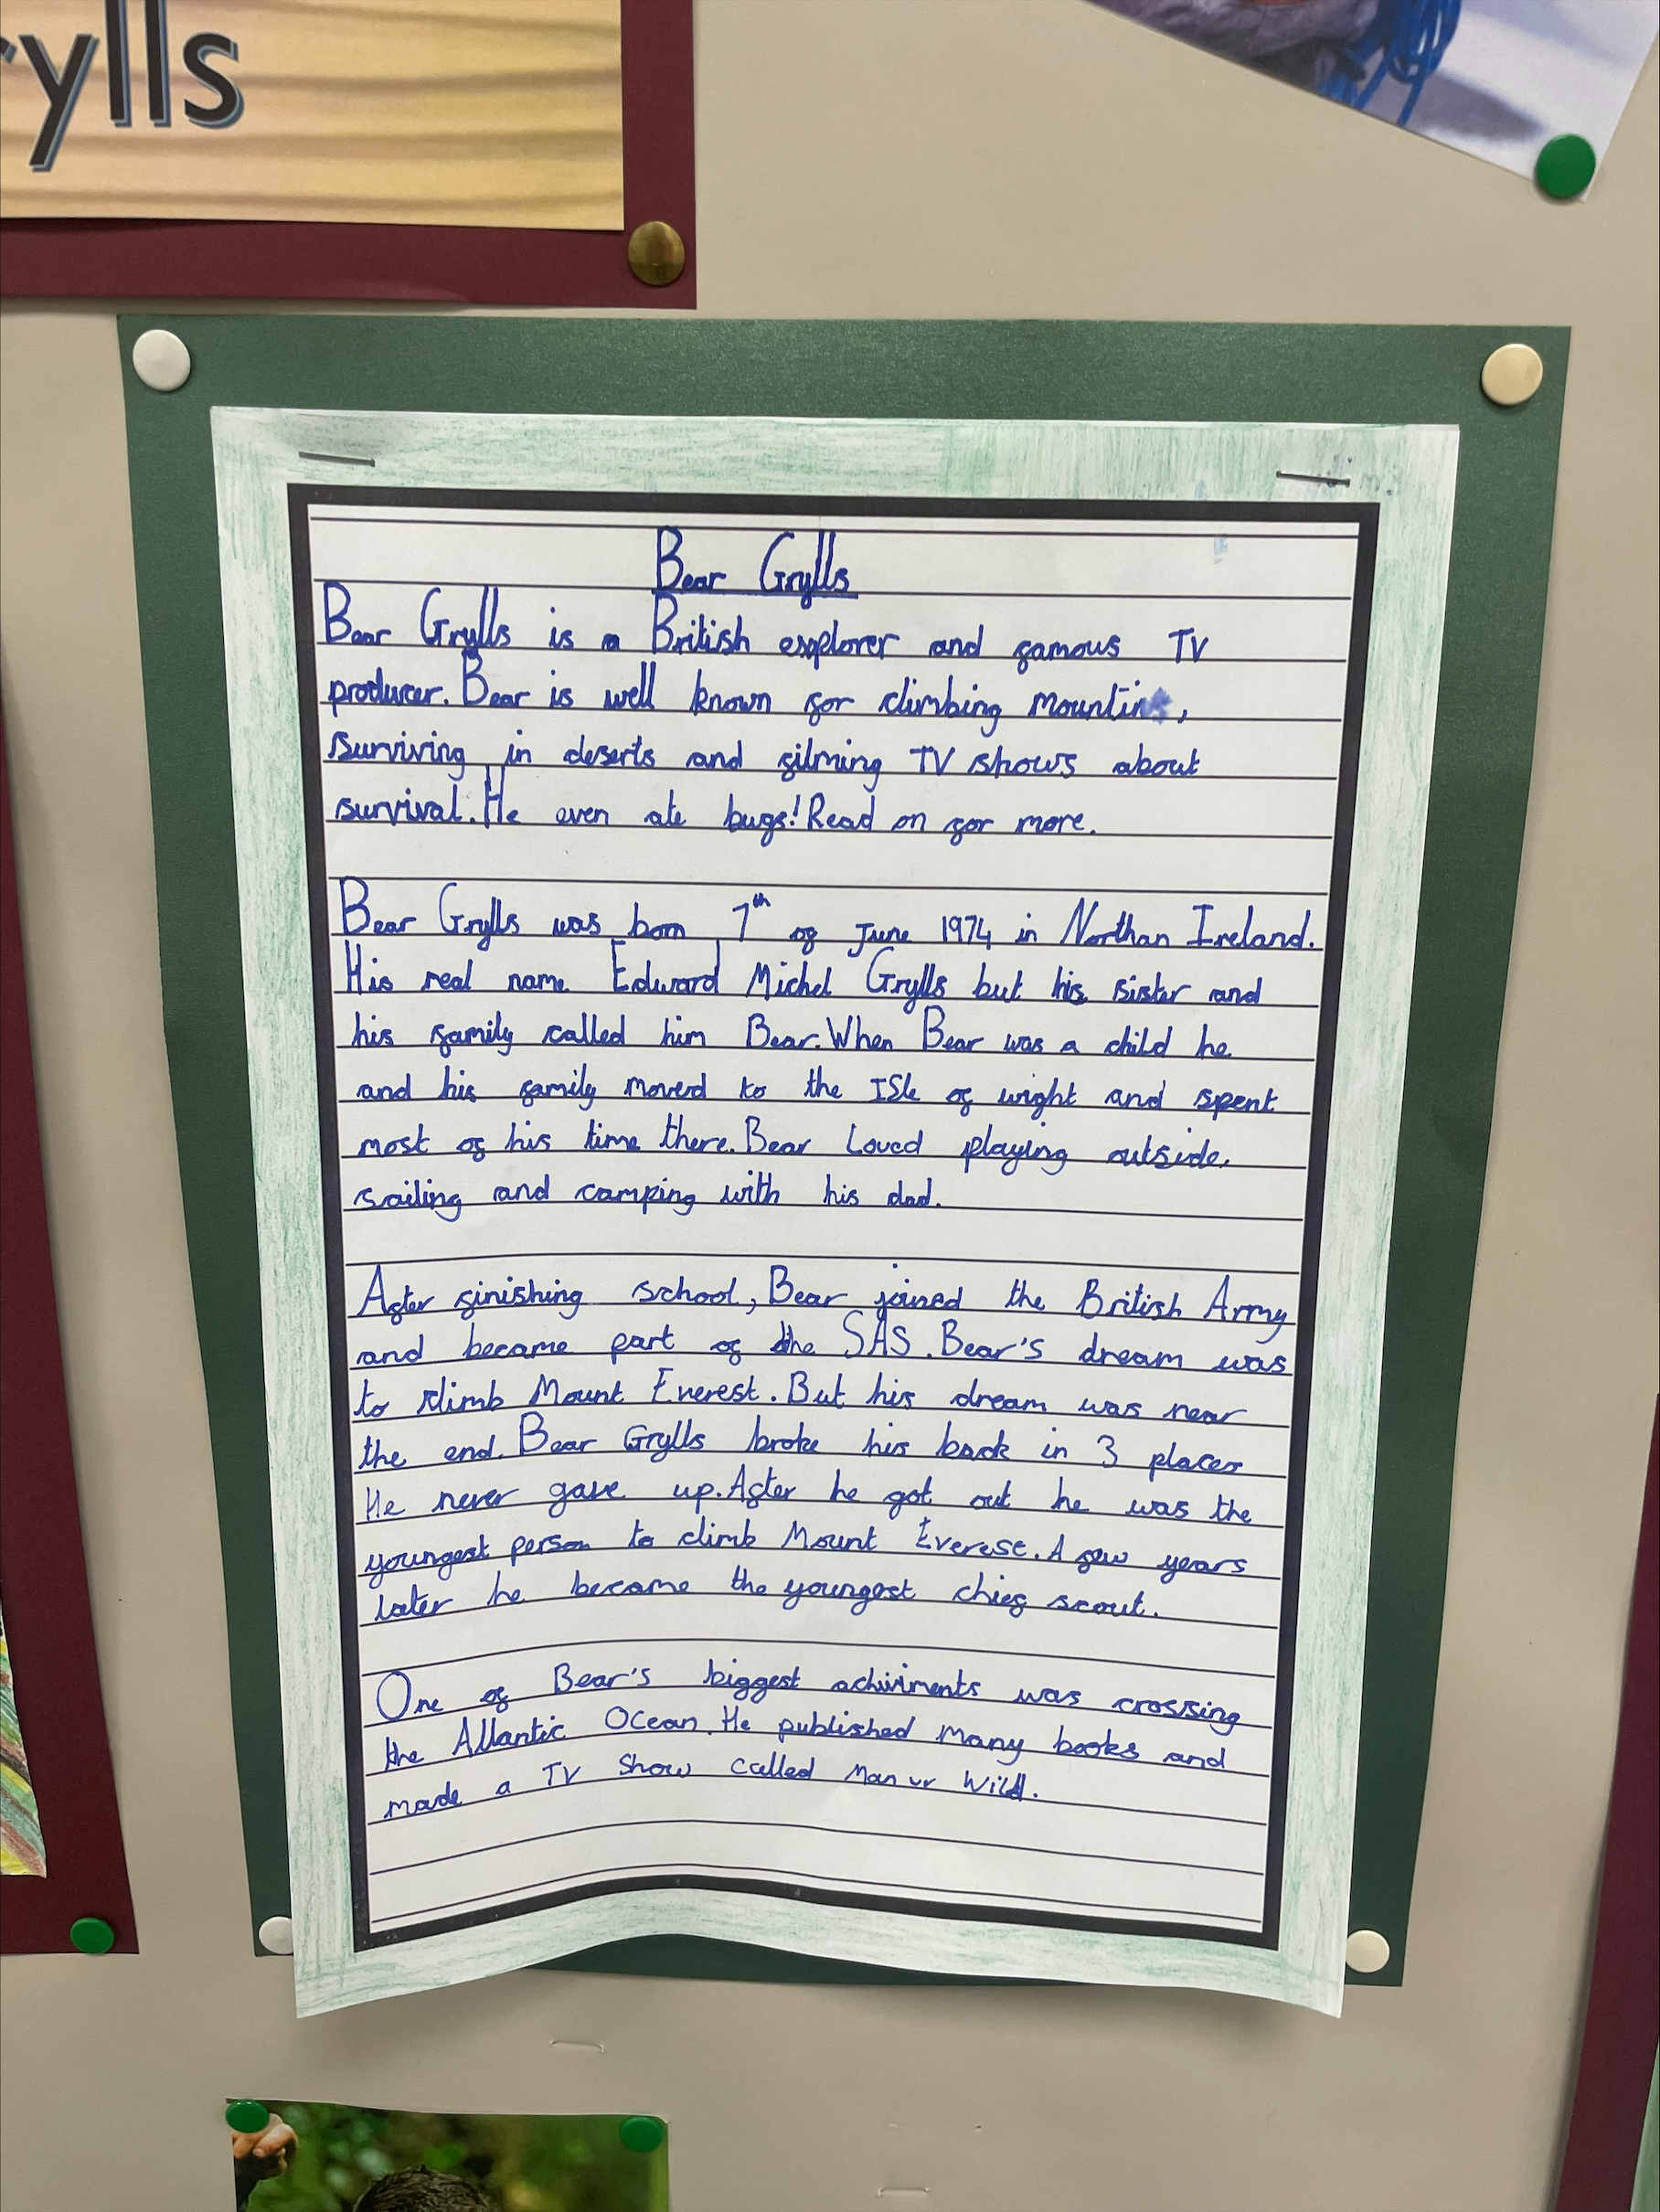 rylls
Bear Grylls
Bear Grylls is a British explorer and famous TV
producer. Bear is well known for climbing mountins,
surviving in deserts and filming TV shows about
survival. He even ate bugs! Read on for more.
Bear Grylls was born 7th of June 1974 in Northan Ireland.
His real name Edward Michel Grylls but his sister and
his family called him Bear. When Bear was a child he
and his family moved to the ISle of wight and spent
most of his time there. Bear Loved playing outside,
sailing and camping with his dad.
After finishing school, Bear joined the British Army
and became part of the SAS. Bear's dream was
to climb Mount Everest. But his dream was near
the end. Bear Grylls broke his back in 3 places
He never gave up. After he got out he was the
youngest person to climb Mount Everest. A few years
later he became the youngest chief scout.
One of Bear's biggest achiviments was crossing
the Atlantic Ocean. He published many books and
made a TV Show called Man vr Wild.